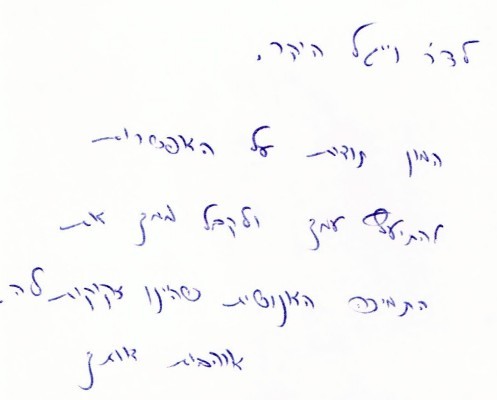 לד״ר וייגל היקר,
המון תודות על האפשרות
להתיעץ עמך ולקבל ממך את
התמיכה האנושית כשהינו זקוקות לה.
אוהבות אותך